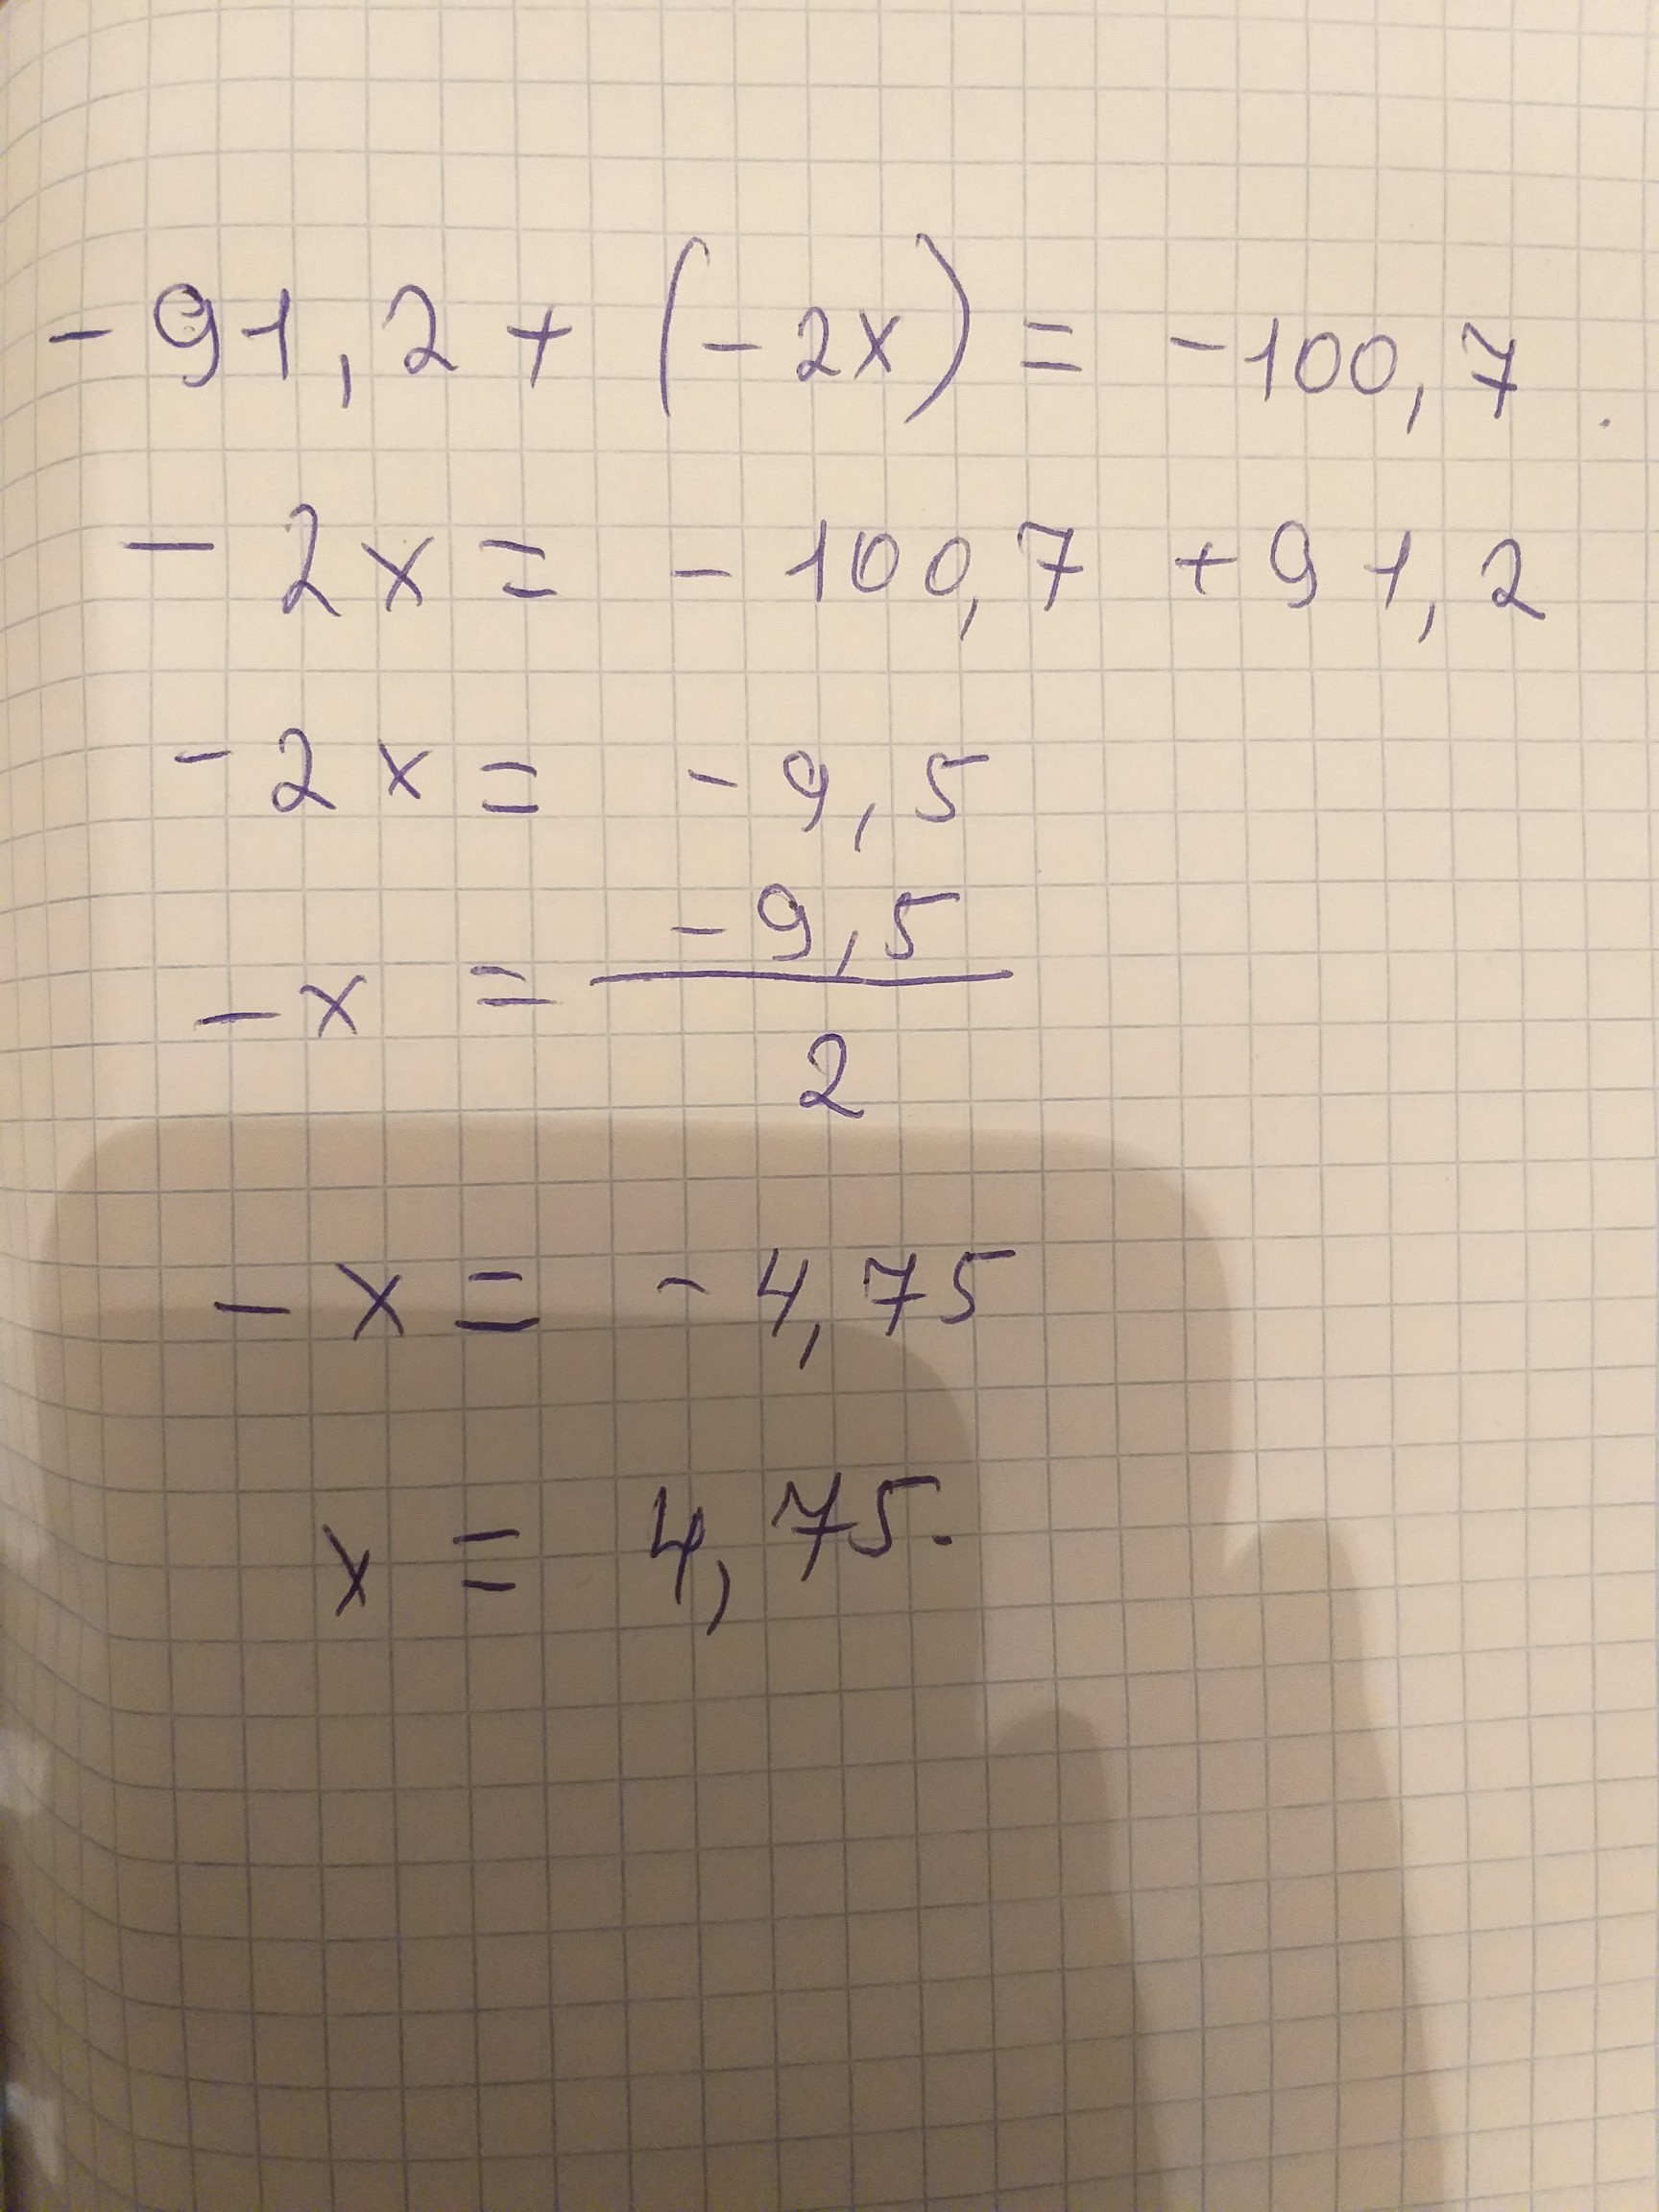 -91,2 + (-2x) = -100,7.
-2x = -100,7 + 91,2
-2x = -9,5
-x = -9,5/2
-x = -4,75
x = 4,75.